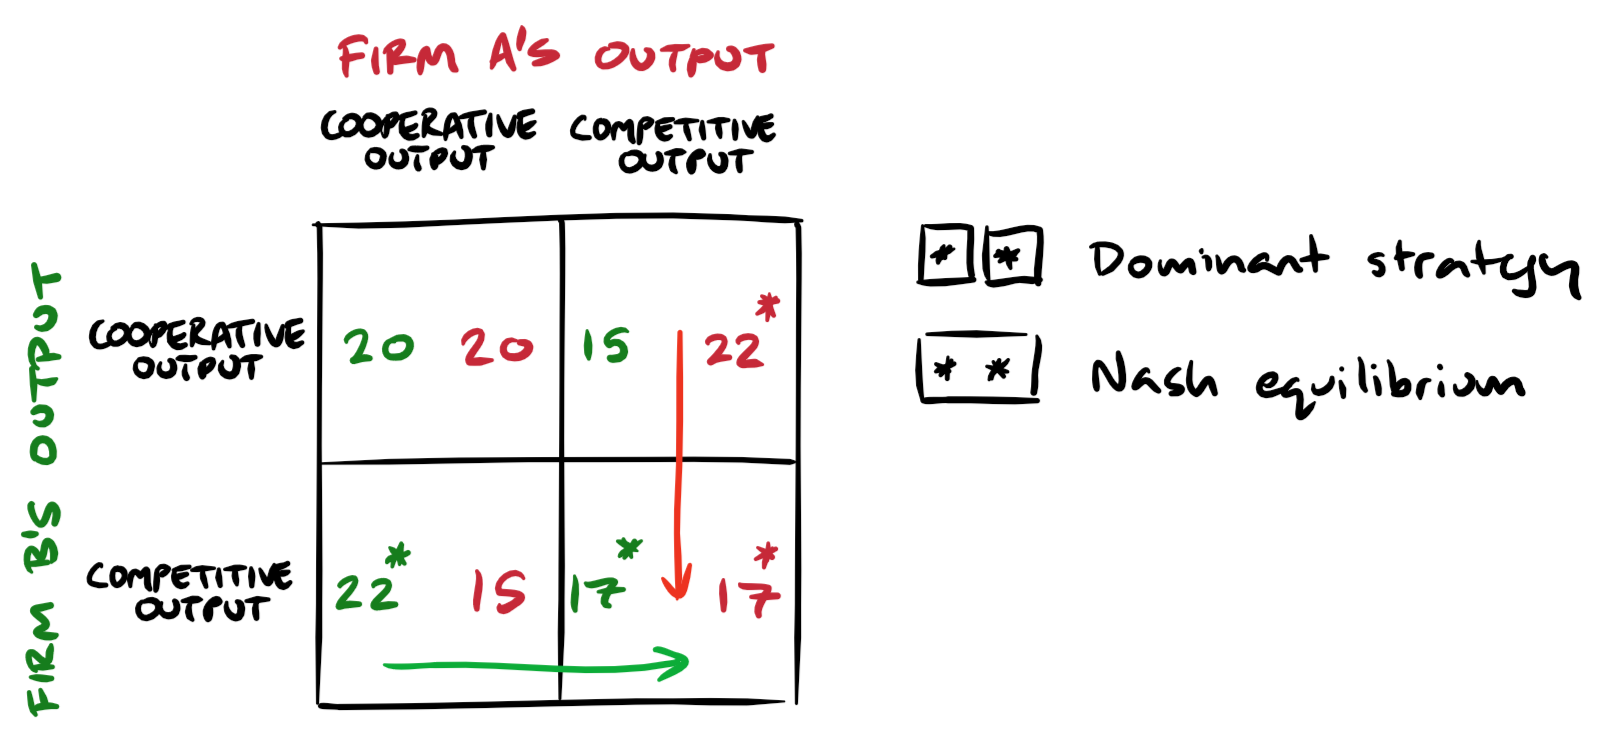 FIRM A'S OUTPUT
COOPERATIVE OUTPUT
COMPETITIVE OUTPUT
FIRM B'S OUTPUT
COOPERATIVE OUTPUT
20 20 15 22*
COMPETITIVE OUTPUT
22* 15 17* 17*
* * Dominant strategy
* * Nash equilibrium